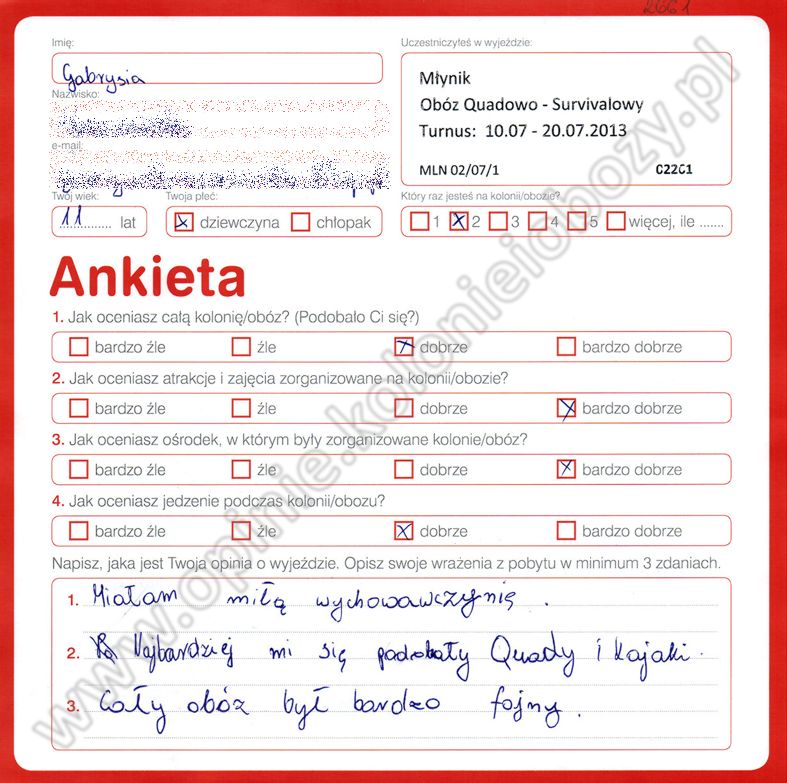 2661
Imię:
Uczestniczyłeś w wyjeździe:
Gabrysia
Młynik
Obóz Quadowo - Survivalowy
Turnus: 10.07 - 20.07.2013
MLN 02/07/1 C22C1
Nazwisko:
e-mail:
Twój wiek: Twoja płeć: Który raz jesteś na kolonii/obozie?
11 lat dziewczyna chłopak 1 2 3 4 5 więcej, ile .......
Ankieta
1. Jak oceniasz całą kolonię/obóz? (Podobało Ci się?)
bardzo źle źle dobrze bardzo dobrze
2. Jak oceniasz atrakcje i zajęcia zorganizowane na kolonii/obozie?
bardzo źle źle dobrze bardzo dobrze
3. Jak oceniasz ośrodek, w którym były zorganizowane kolonie/obóz?
bardzo źle źle dobrze bardzo dobrze
4. Jak oceniasz jedzenie podczas kolonii/obozu?
bardzo źle źle dobrze bardzo dobrze
Napisz, jaka jest Twoja opinia o wyjeździe. Opisz swoje wrażenia z pobytu w minimum 3 zdaniach.
1. Miałam miłą wychowawczynię.
2. Najbardziej mi się podobały Quady i kajaki.
3. Cały obóz był bardzo fajny.
www.opinie.kolonieiobozy.pl